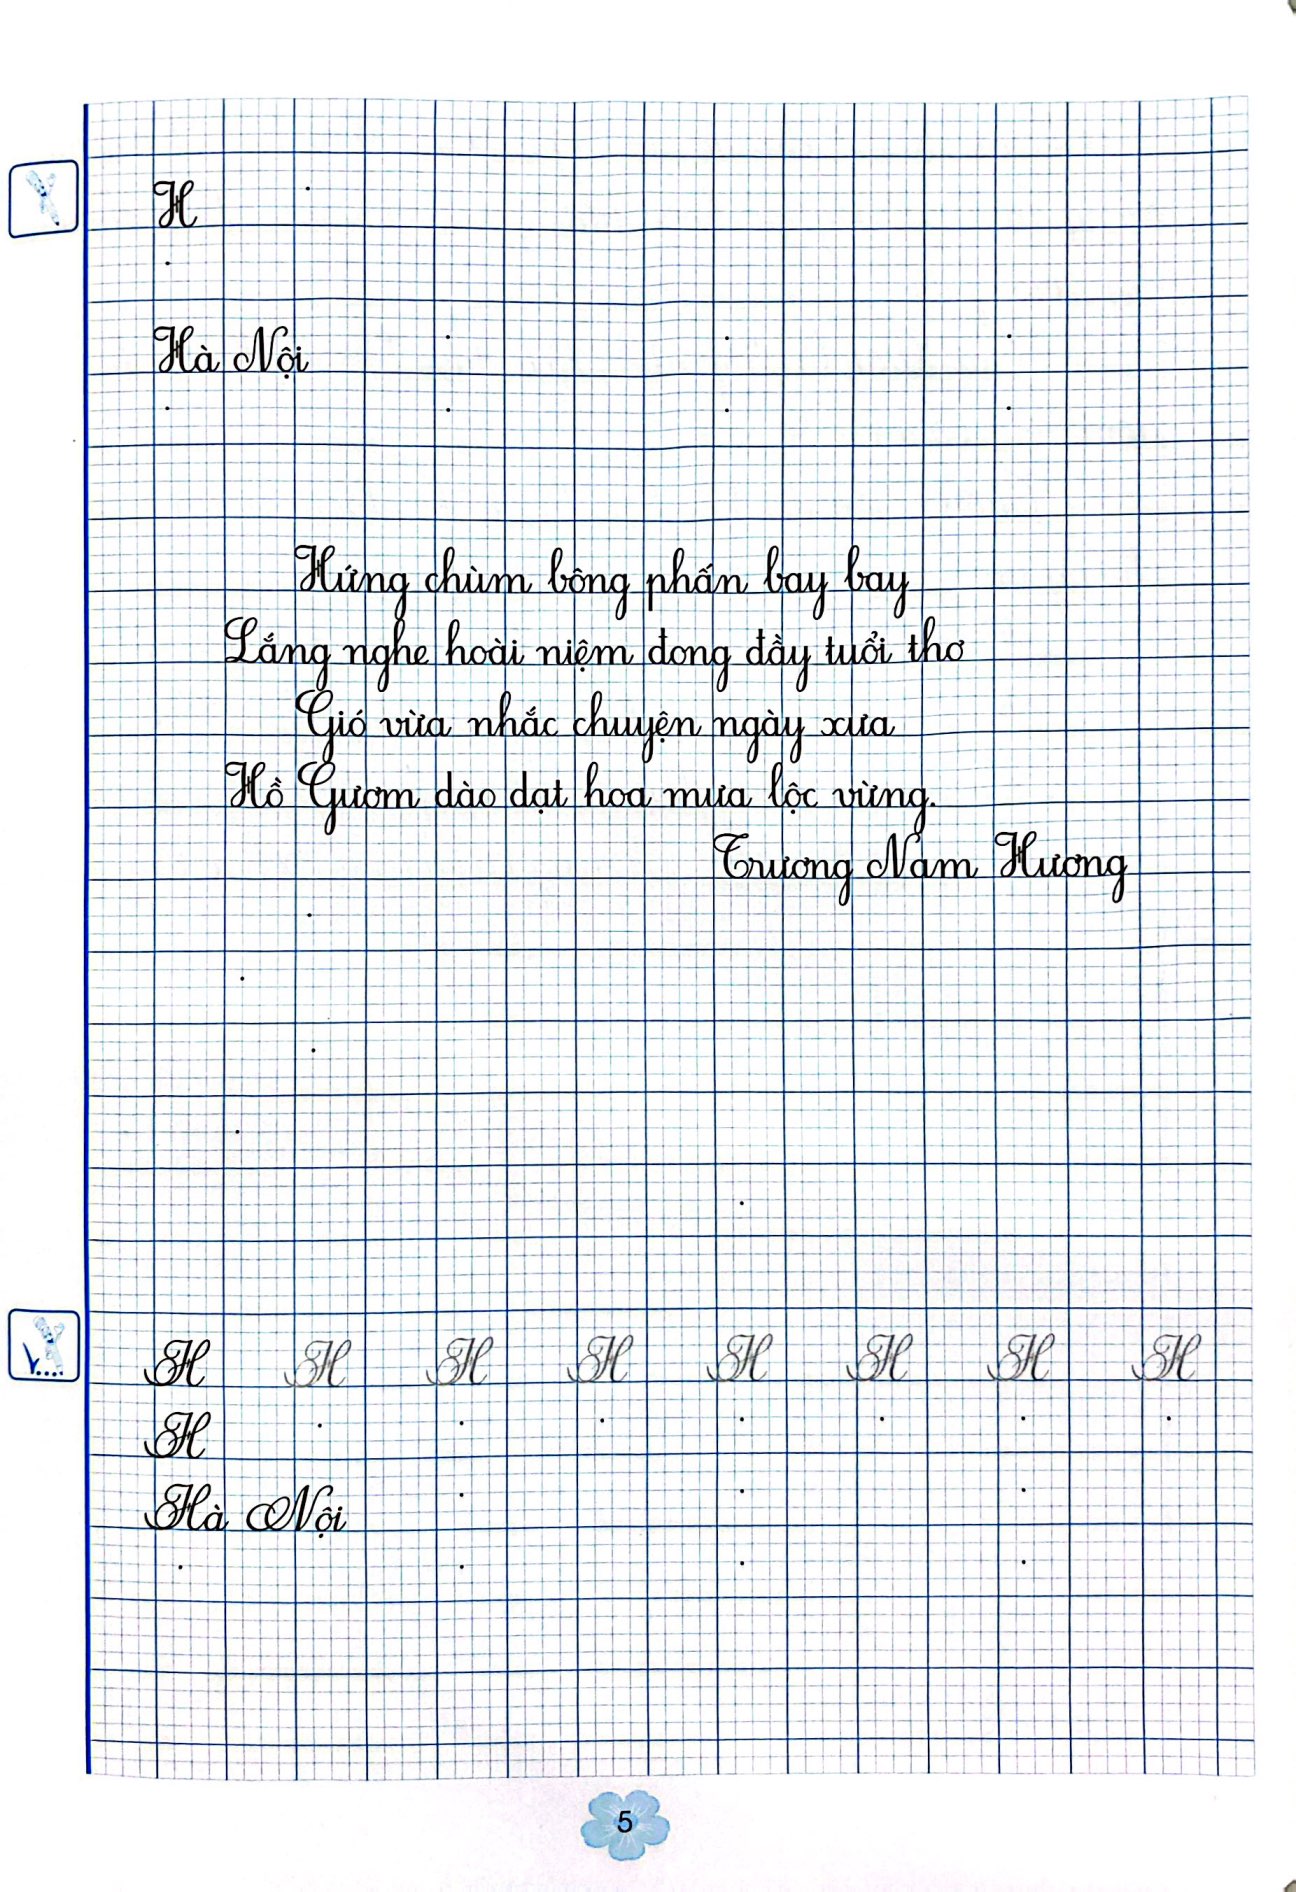 H
Hà Nội
Hứng chùm bông phấn bay bay
Lắng nghe hoài niệm đong đầy tuổi thơ
Gió vừa nhắc chuyện ngày xưa
Hồ Gươm dào dạt hoa mưa lộc vừng.
Trương Nam Hương
H H H H H H H H
H
Hà Nội
5